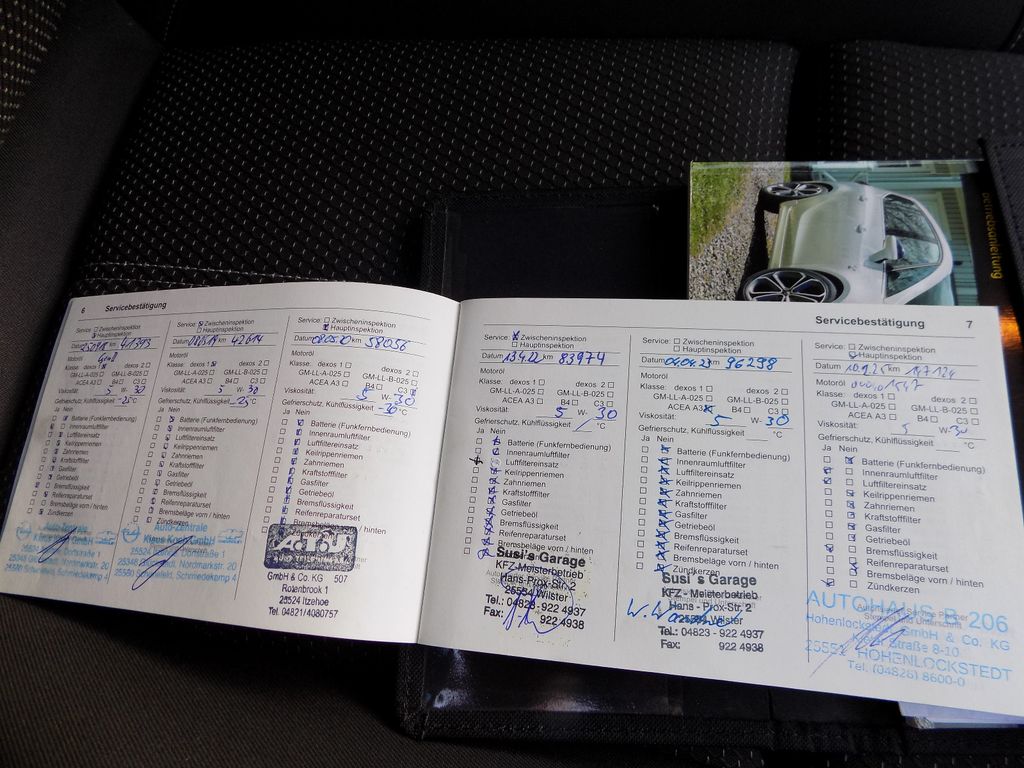 betriebsanleitung
6 Servicebestätigung
Service: Zwischeninspektion
Hauptinspektion
Datum km 41393
Motoröl
Klasse: dexos 1 dexos 2
GM-LL-A-025 GM-LL-B-025
ACEA A3 B4 C3
Viskosität: 5 W- 30
Gefrierschutz, Kühlflüssigkeit -25 °C
Ja Nein
Batterie (Funkfernbedienung)
Innenraumluftfilter
Luftfiltereinsatz
Keilrippenriemen
Zahnriemen
Kraftstofffilter
Gasfilter
Getriebeöl
Bremsflüssigkeit
Reifenreparaturset
Bremsbeläge vorn / hinten
Zündkerzen
Auto-Zentrale
25524 Itzehoe, Dorfstraße 1
Service: Zwischeninspektion
Hauptinspektion
Datum km 42614
Motoröl
Klasse: dexos 1 dexos 2
GM-LL-A-025 GM-LL-B-025
ACEA A3 B4 C3
Viskosität: 5 W- 30
Gefrierschutz, Kühlflüssigkeit -25 °C
Ja Nein
Batterie (Funkfernbedienung)
Innenraumluftfilter
Luftfiltereinsatz
Keilrippenriemen
Zahnriemen
Kraftstofffilter
Gasfilter
Getriebeöl
Bremsflüssigkeit
Reifenreparaturset
Bremsbeläge vorn / hinten
Zündkerzen
Auto-Zentrale
Service: Zwischeninspektion
Hauptinspektion
Datum 080520 km 58056
Motoröl
Klasse: dexos 1 dexos 2
GM-LL-A-025 GM-LL-B-025
ACEA A3 B4 C3
Viskosität: 5 W- 30
Gefrierschutz, Kühlflüssigkeit -30 °C
Ja Nein
Batterie (Funkfernbedienung)
Innenraumluftfilter
Luftfiltereinsatz
Keilrippenriemen
Zahnriemen
Kraftstofffilter
Gasfilter
Getriebeöl
Bremsflüssigkeit
Reifenreparaturset
Bremsbeläge vorn / hinten
GmbH & Co. KG 507
Rotenbrook 1
25524 Itzehoe
Tel.: 04821/4080757
Servicebestätigung 7
Service: Zwischeninspektion
Hauptinspektion
Datum 13.4.22 km 83974
Motoröl
Klasse: dexos 1 dexos 2
GM-LL-A-025 GM-LL-B-025
ACEA A3 B4 C3
Viskosität: 5 W- 30
Gefrierschutz, Kühlflüssigkeit / °C
Ja Nein
Batterie (Funkfernbedienung)
Innenraumluftfilter
Luftfiltereinsatz
Keilrippenriemen
Zahnriemen
Kraftstofffilter
Gasfilter
Getriebeöl
Bremsflüssigkeit
Reifenreparaturset
Bremsbeläge vorn / hinten
Susi's Garage
KFZ-Meisterbetrieb
Hans-Prox-Str. 2
25554 Wilster
Tel.: 04823 - 922 4937
Fax: 922 4938
Service: Zwischeninspektion
Hauptinspektion
Datum 04.04.23 km 96298
Motoröl
Klasse: dexos 1 dexos 2
GM-LL-A-025 GM-LL-B-025
ACEA A3 B4 C3
Viskosität: 5 W- 30
Gefrierschutz, Kühlflüssigkeit °C
Ja Nein
Batterie (Funkfernbedienung)
Innenraumluftfilter
Luftfiltereinsatz
Keilrippenriemen
Zahnriemen
Kraftstofffilter
Gasfilter
Getriebeöl
Bremsflüssigkeit
Reifenreparaturset
Bremsbeläge vorn / hinten
Zündkerzen
Susi's Garage
KFZ - Meisterbetrieb
Hans - Prox-Str. 2
Wilster
Tel.: 04823 - 922 4937
Fax: 922 4938
Service: Zwischeninspektion
Hauptinspektion
Datum km 147124
Motoröl
Klasse: dexos 1 dexos 2
GM-LL-A-025 GM-LL-B-025
ACEA A3 B4 C3
Viskosität: 5 W- 30
Gefrierschutz, Kühlflüssigkeit °C
Ja Nein
Batterie (Funkfernbedienung)
Innenraumluftfilter
Luftfiltereinsatz
Keilrippenriemen
Zahnriemen
Kraftstofffilter
Gasfilter
Getriebeöl
Bremsflüssigkeit
Reifenreparaturset
Bremsbeläge vorn / hinten
Zündkerzen
AUTOHAUS B 206
Hohenlockstedt GmbH & Co. KG
Kieler Straße 8-10
25551 HOHENLOCKSTEDT
Tel. (04826) 8600-0